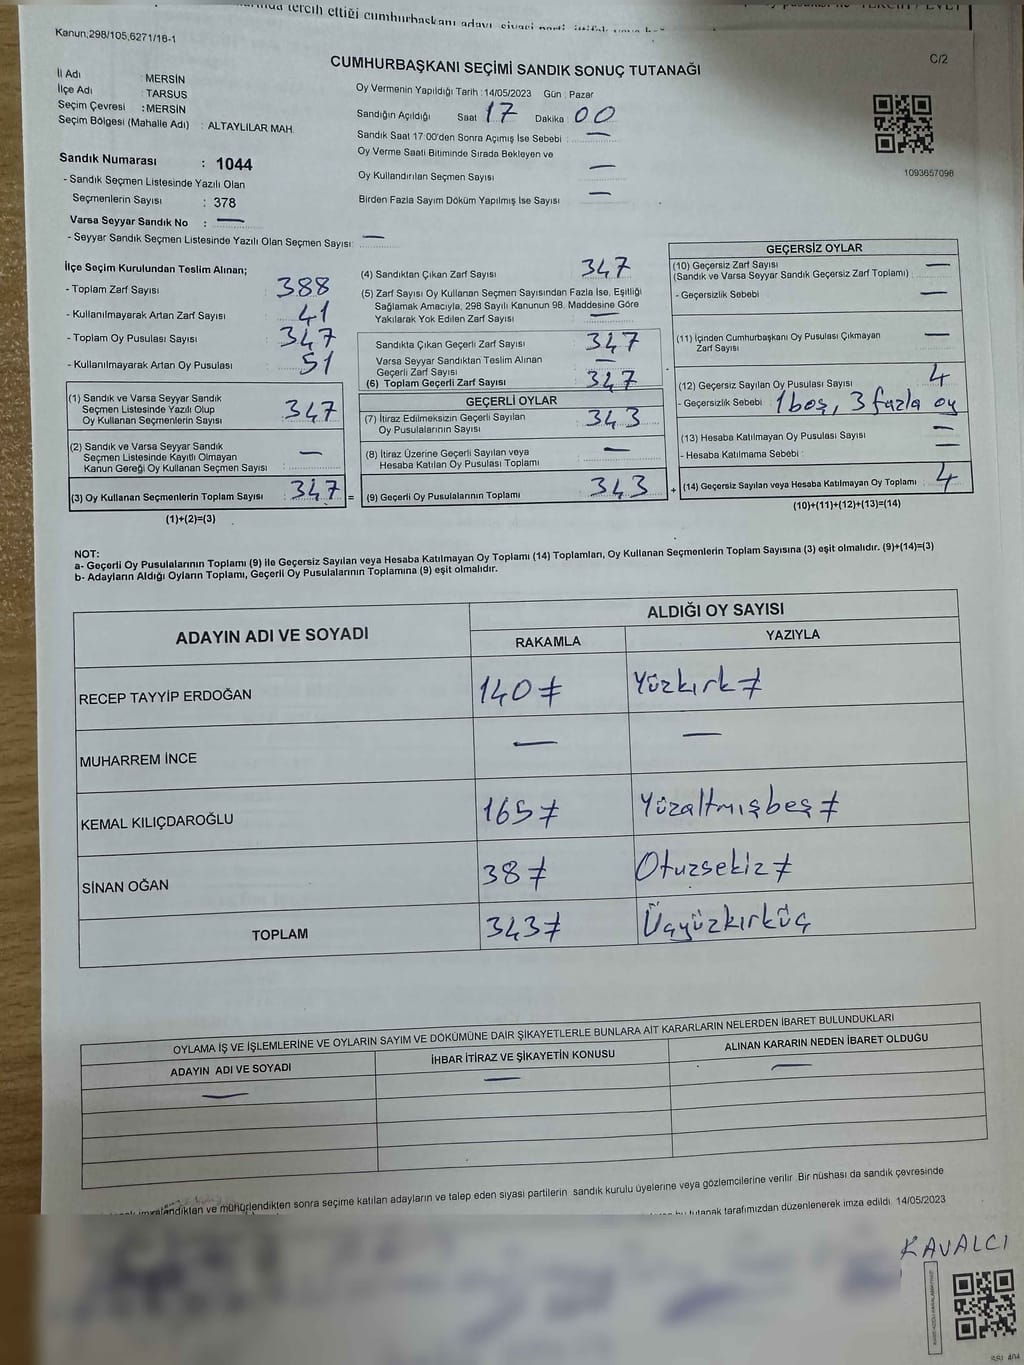 tercih ettiği cumhurbaşkanı adayı
Kanun,298/105,6271/18-1
C/2
CUMHURBAŞKANI SEÇİMİ SANDIK SONUÇ TUTANAĞI
İl Adı : MERSİN
İlçe Adı : TARSUS
Seçim Çevresi : MERSİN
Seçim Bölgesi (Mahalle Adı) : ALTAYLILAR MAH.
Oy Vermenin Yapıldığı Tarih : 14/05/2023 Gün : Pazar
Sandığın Açıldığı Saat 17 Dakika 00
Sandık Saat 17:00'den Sonra Açımış İse Sebebi : —
Oy Verme Saati Bitiminde Sırada Bekleyen ve
Oy Kullandırılan Seçmen Sayısı —
Birden Fazla Sayım Döküm Yapılmış İse Sayısı —
1093657098
Sandık Numarası : 1044
- Sandık Seçmen Listesinde Yazılı Olan
Seçmenlerin Sayısı : 378
Varsa Seyyar Sandık No : —
- Seyyar Sandık Seçmen Listesinde Yazılı Olan Seçmen Sayısı: —
İlçe Seçim Kurulundan Teslim Alınan;
- Toplam Zarf Sayısı 388
- Kullanılmayarak Artan Zarf Sayısı 41
- Toplam Oy Pusulası Sayısı 347
- Kullanılmayarak Artan Oy Pusulası 51
(1) Sandık ve Varsa Seyyar Sandık
Seçmen Listesinde Yazılı Olup
Oy Kullanan Seçmenlerin Sayısı 347
(2) Sandık ve Varsa Seyyar Sandık
Seçmen Listesinde Kayıtlı Olmayan
Kanun Gereği Oy Kullanan Seçmen Sayısı —
(3) Oy Kullanan Seçmenlerin Toplam Sayısı 347 =
(1)+(2)=(3)
(4) Sandıktan Çıkan Zarf Sayısı 347
(5) Zarf Sayısı Oy Kullanan Seçmen Sayısından Fazla İse, Eşitliği
Sağlamak Amacıyla, 298 Sayılı Kanunun 98. Maddesine Göre
Yakılarak Yok Edilen Zarf Sayısı —
Sandıkta Çıkan Geçerli Zarf Sayısı 347
Varsa Seyyar Sandıktan Teslim Alınan
Geçerli Zarf Sayısı —
(6) Toplam Geçerli Zarf Sayısı 347
GEÇERLİ OYLAR
(7) İtiraz Edilmeksizin Geçerli Sayılan
Oy Pusulalarının Sayısı 343
(8) İtiraz Üzerine Geçerli Sayılan veya
Hesaba Katılan Oy Pusulası Toplamı —
(9) Geçerli Oy Pusulalarının Toplamı 343 +
GEÇERSİZ OYLAR
(10) Geçersiz Zarf Sayısı
(Sandık ve Varsa Seyyar Sandık Geçersiz Zarf Toplamı) —
- Geçersizlik Sebebi —
(11) İçinden Cumhurbaşkanı Oy Pusulası Çıkmayan
Zarf Sayısı —
(12) Geçersiz Sayılan Oy Pusulası Sayısı 4
- Geçersizlik Sebebi 1 boş, 3 fazla oy
(13) Hesaba Katılmayan Oy Pusulası Sayısı —
- Hesaba Katılmama Sebebi : —
(14) Geçersiz Sayılan veya Hesaba Katılmayan Oy Toplamı 4
(10)+(11)+(12)+(13)=(14)
NOT:
a- Geçerli Oy Pusulalarının Toplamı (9) ile Geçersiz Sayılan veya Hesaba Katılmayan Oy Toplamı (14) Toplamları, Oy Kullanan Seçmenlerin Toplam Sayısına (3) eşit olmalıdır. (9)+(14)=(3)
b- Adayların Aldığı Oyların Toplamı, Geçerli Oy Pusulalarının Toplamına (9) eşit olmalıdır.
ADAYIN ADI VE SOYADI
ALDIĞI OY SAYISI
RAKAMLA YAZIYLA
RECEP TAYYİP ERDOĞAN 140 ≠ Yüzkırk ≠
MUHARREM İNCE — —
KEMAL KILIÇDAROĞLU 165 ≠ Yüzaltmışbeş ≠
SİNAN OĞAN 38 ≠ Otuzsekiz ≠
TOPLAM 343 ≠ Üçyüzkırküç
OYLAMA İŞ VE İŞLEMLERİNE VE OYLARIN SAYIM VE DÖKÜMÜNE DAİR ŞİKAYETLERLE BUNLARA AİT KARARLARIN NELERDEN İBARET BULUNDUKLARI
ADAYIN ADI VE SOYADI İHBAR İTİRAZ VE ŞİKAYETİN KONUSU ALINAN KARARIN NEDEN İBARET OLDUĞU
— — —
imzalandıktan ve mühürlendikten sonra seçime katılan adayların ve talep eden siyasi partilerin sandık kurulu üyelerine veya gözlemcilerine verilir. Bir nüshası da sandık çevresinde
bu tutanak tarafımızdan düzenlenerek imza edildi. 14/05/2023
KAVALCI